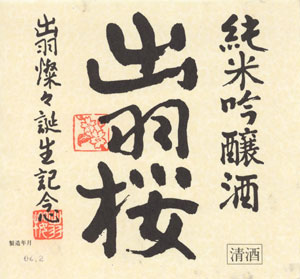 純米吟醸酒
出羽桜
出羽燦々誕生記念
製造年月
06.2
清酒